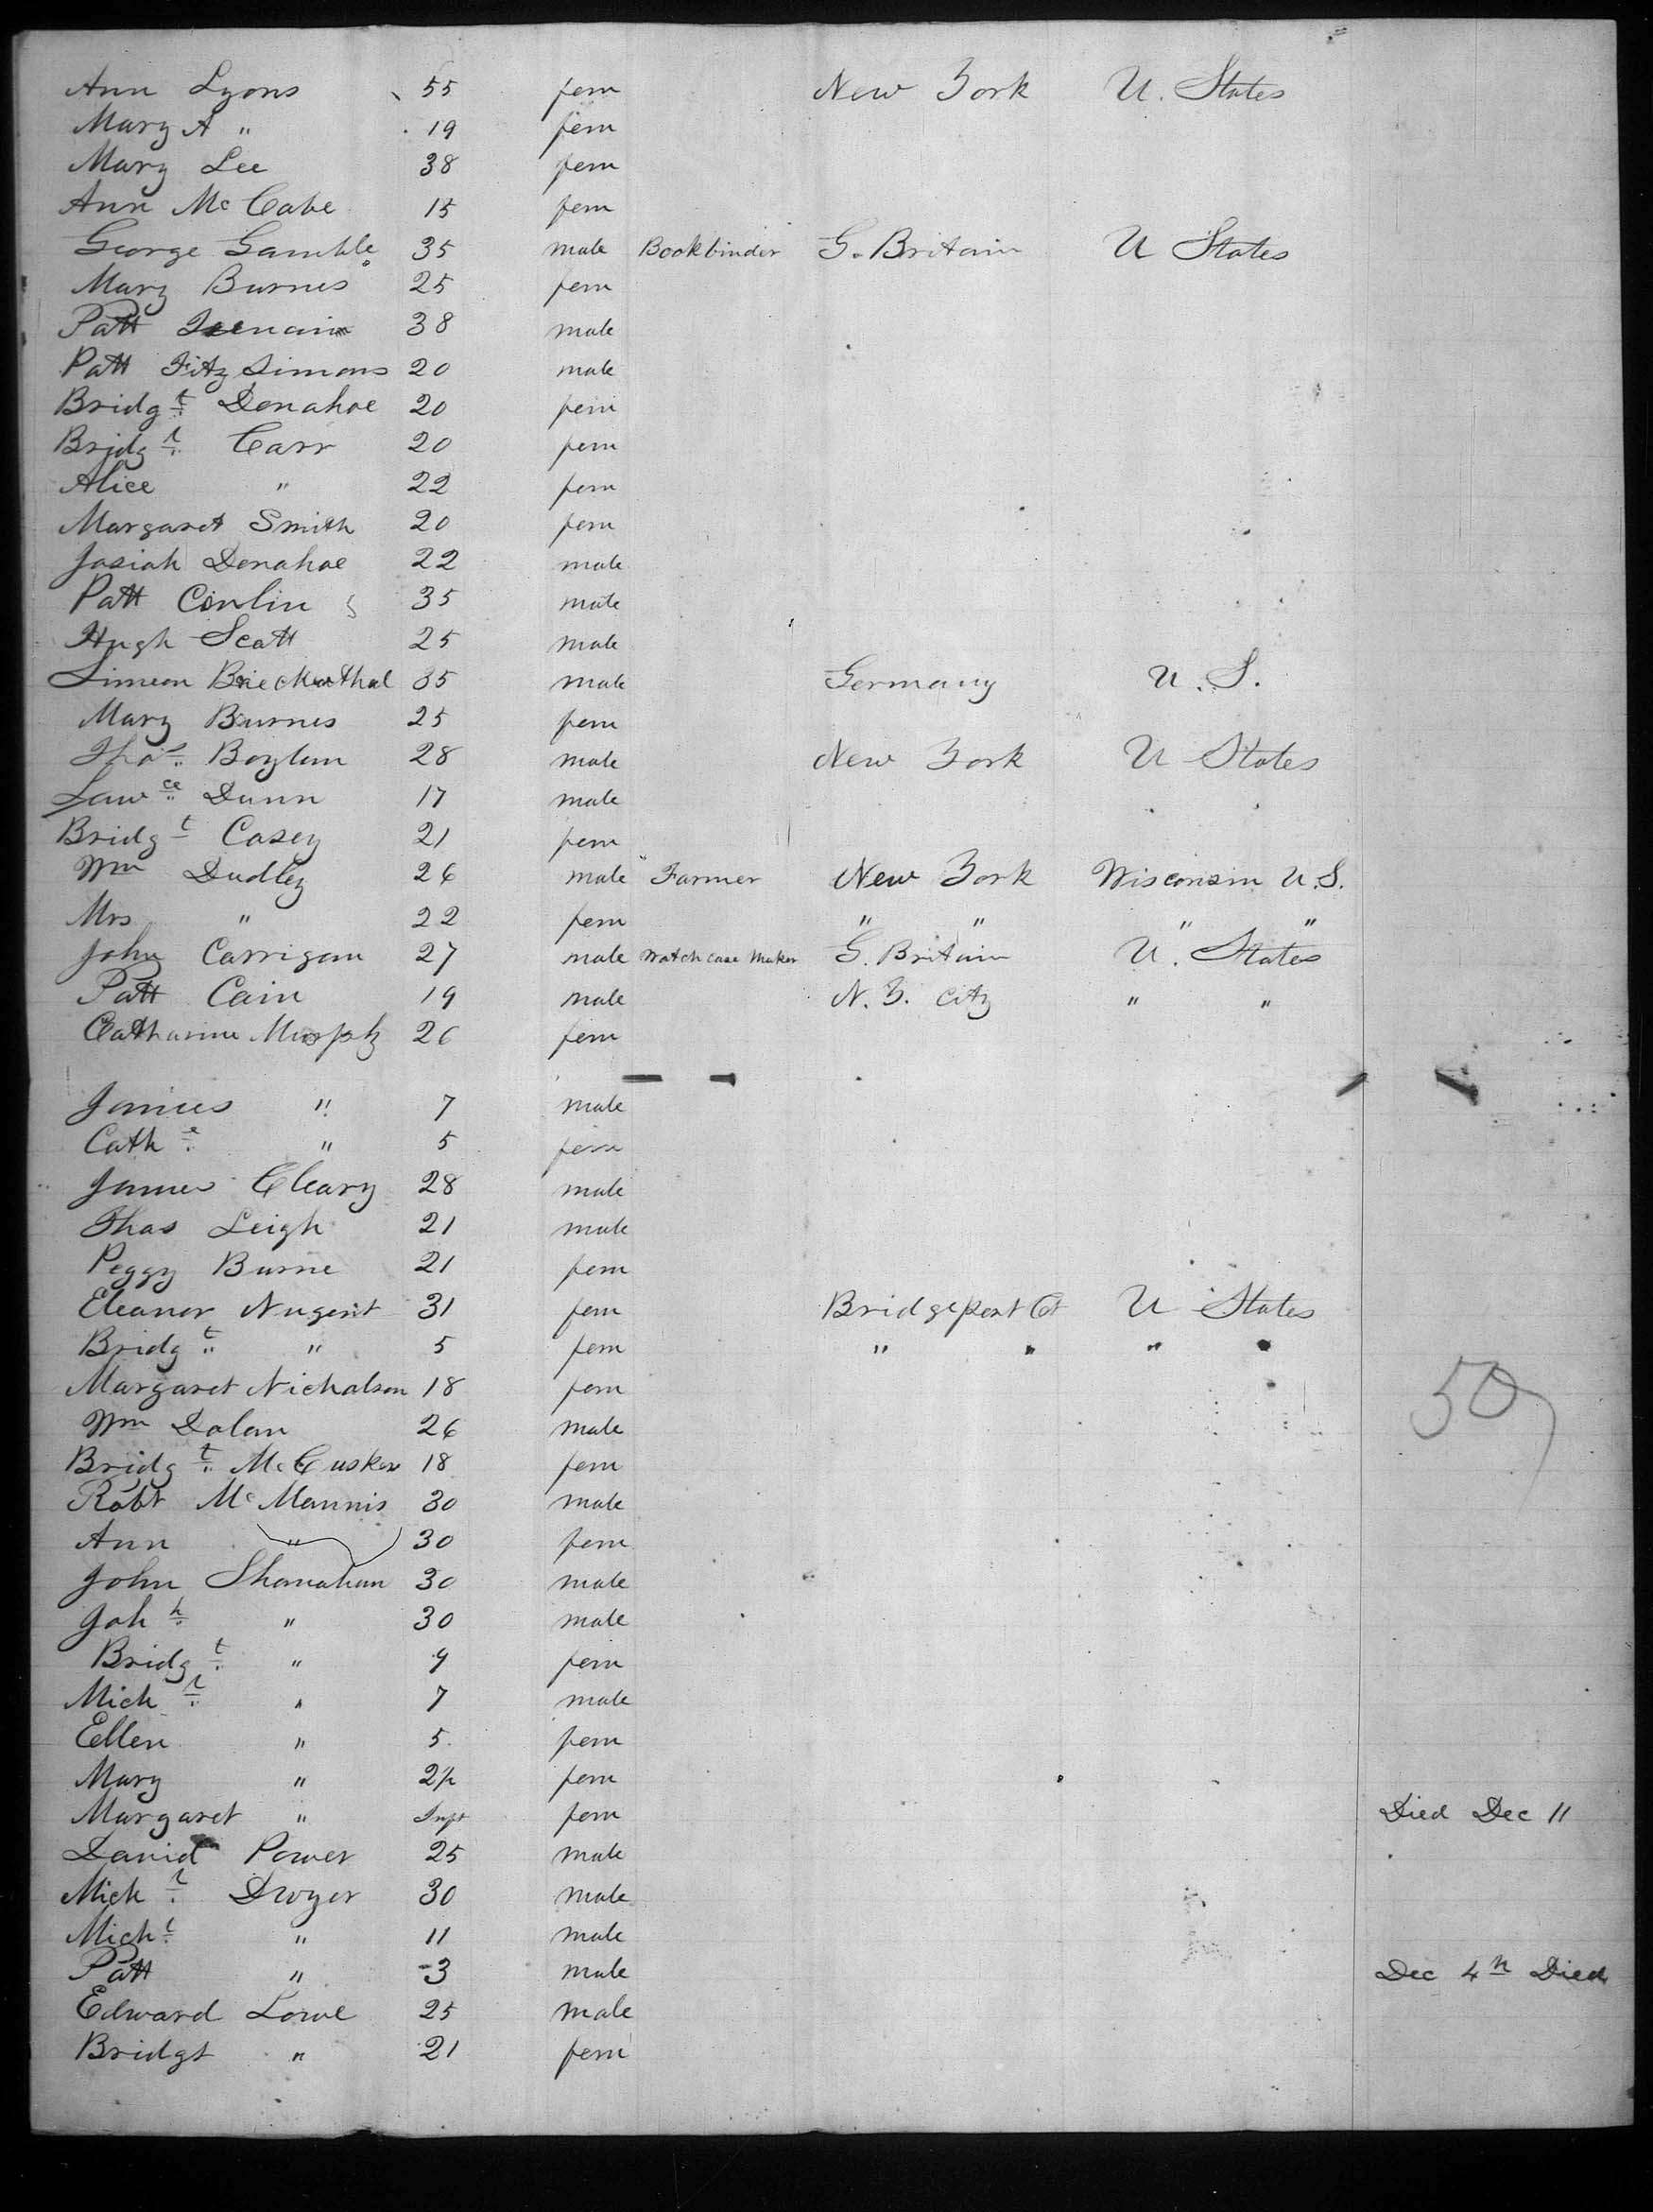 Ann Lyons 55 fem New York U. States
Mary A " 19 fem
Mary Lee 38 fem
Ann McCabe 15 fem
George Gamble 35 male Bookbinder G. Britain U States
Mary Burnes 25 fem
Patt 38 male
Patt Fitz Simons 20 male
Bridgt Donahoe 20 fem
Bridgt Carr 20 fem
Alice " 22 fem
Margaret Smith 20 fem
Josiah Donahoe 22 male
Patt Conlin 35 male
Hugh Scott 25 male
Simeon 35 male Germany U. S.
Mary Burnes 25 fem
Thos Boylan 28 male New York U States
Lawce Dunn 17 male
Bridgt Casey 21 fem
Wm Dudley 26 male Farmer New York Wisconsin U.S.
Mrs " 22 fem " " " "
John Carrigan 27 male Watch case Maker G. Britain U. States
Patt Cain 19 male N.Y. City " "
Catharine Murphy 26 fem
James " 7 male
Cathe " 5 fem
James Cleary 28 male
Thos Leigh 21 male
Peggy Burne 21 fem
Eleanor Nugent 31 fem Bridgeport Ct U States
Bridgt " 5 fem " " " "
Margaret Nicholson 18 fem
Wm Dolan 26 male
Bridgt McCusker 18 fem
Robt McMannis 30 male
Ann " 30 fem
John Shanahan 30 male
Joh h " 30 male
Bridgt " 9 fem
Michl " 7 male
Ellen " 5 fem
Mary " fem
Margaret " Inft fem Died Dec 11
David Power 25 male
Michl Dwyer 30 male
Michl " 11 male
Patt " 3 male Dec 4th Died
Edward Lowe 25 male
Bridgt " 21 fem
50